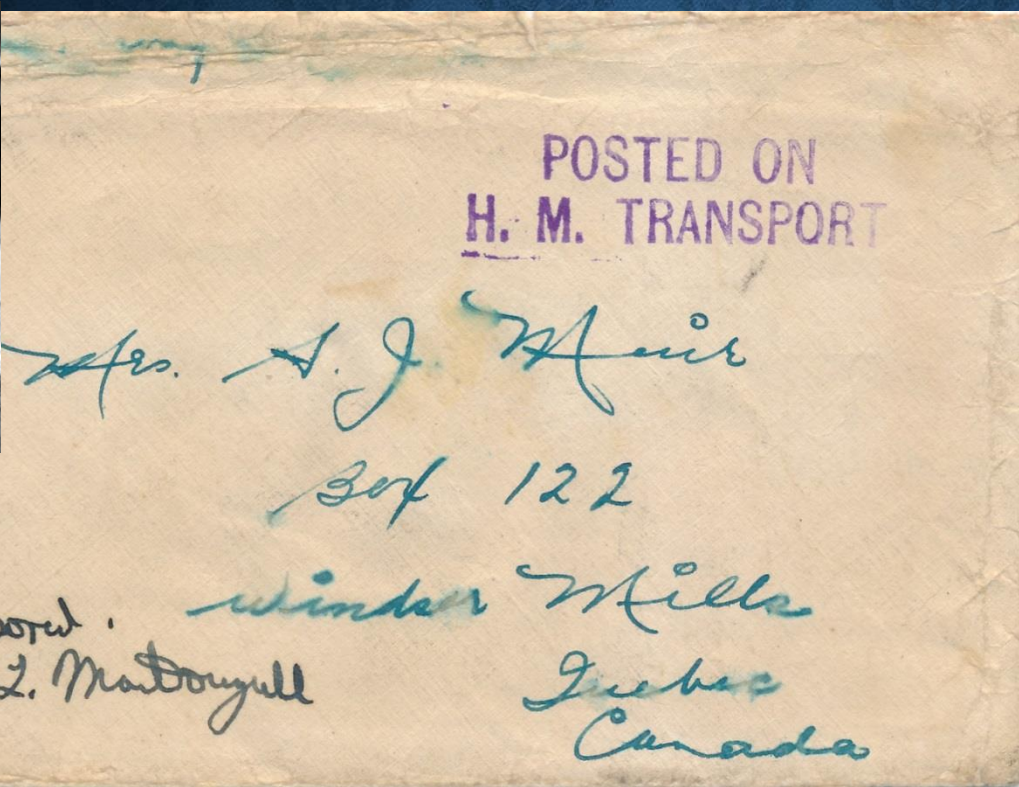 POSTED ON
H. M. TRANSPORT
Mrs. A. J. Muir
Box 122
Windsor Mills
Quebec
Canada
L. MacDougall